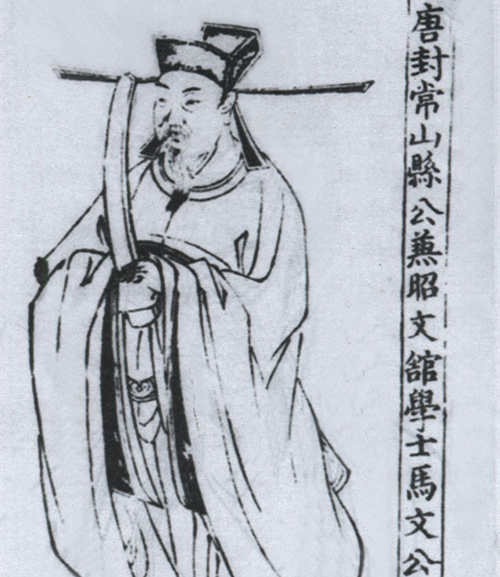 唐封常山縣公蕪昭文舘學士馬文公